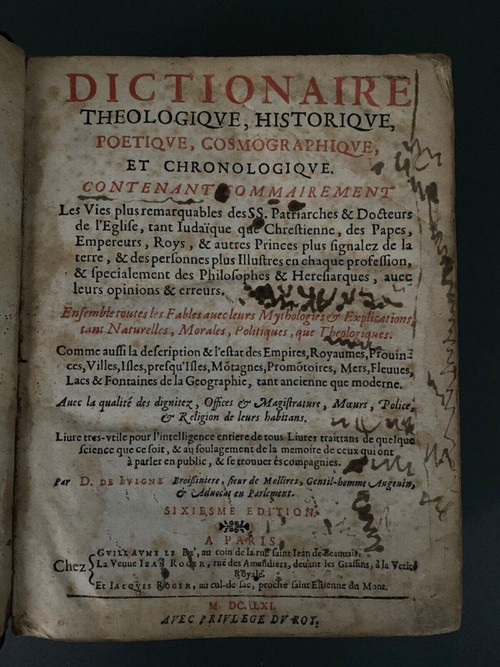 DICTIONAIRE
THEOLOGIQVE, HISTORIQVE,
POETIQVE, COSMOGRAPHIQVE,
ET CHRONOLOGIQVE.
CONTENANT SOMMAIREMENT
Les Vies plus remarquables des SS. Patriarches & Docteurs
de l'Eglise, tant Iudaïque que Chrestienne, des Papes,
Empereurs, Roys, & autres Princes plus signalez de la
terre, & des personnes plus Illustres en chaque profession,
& specialement des Philosophes & Heresiarques, auec
leurs opinions & erreurs.
Ensemble toutes les Fables auec leurs Mythologies & Explications,
tant Naturelles, Morales, Politiques, que Theologiques.
Comme aussi la description & l'estat des Empires, Royaumes, Prouin-
ces, Villes, Isles, presqu'Isles, Mõtagnes, Promõtoires, Mers, Fleuues,
Lacs & Fontaines de la Geographie, tant ancienne que moderne.
Auec la qualité des dignitez, Offices & Magistrature, Mœurs, Police,
& Religion de leurs habitans.
Liure tres-vtile pour l'intelligence entiere de tous Liures traittans de quelque
science que ce soit, & au soulagement de la memoire de ceux qui ont
à parler en public, & se trouuer és compagnies.
Par D. DE IVIGNE Broissiniere, sieur de Mollires, Gentil-homme Angeuin,
& Aduocat en Parlement.
SIXIESME EDITION
A PARIS,
Chez GVILLAVME LE BE', au coin de la rue saint Iean de Beauuais.
La Veuue IEAN ROGER, rue des Amandiers, deuant les Grassins, à la Verité
Royale.
Et IACQVES ROGER, au cul-de sac, proche saint Estienne du Mont.
M. DC. LXI.
AVEC PRIVLEGE DV ROY.